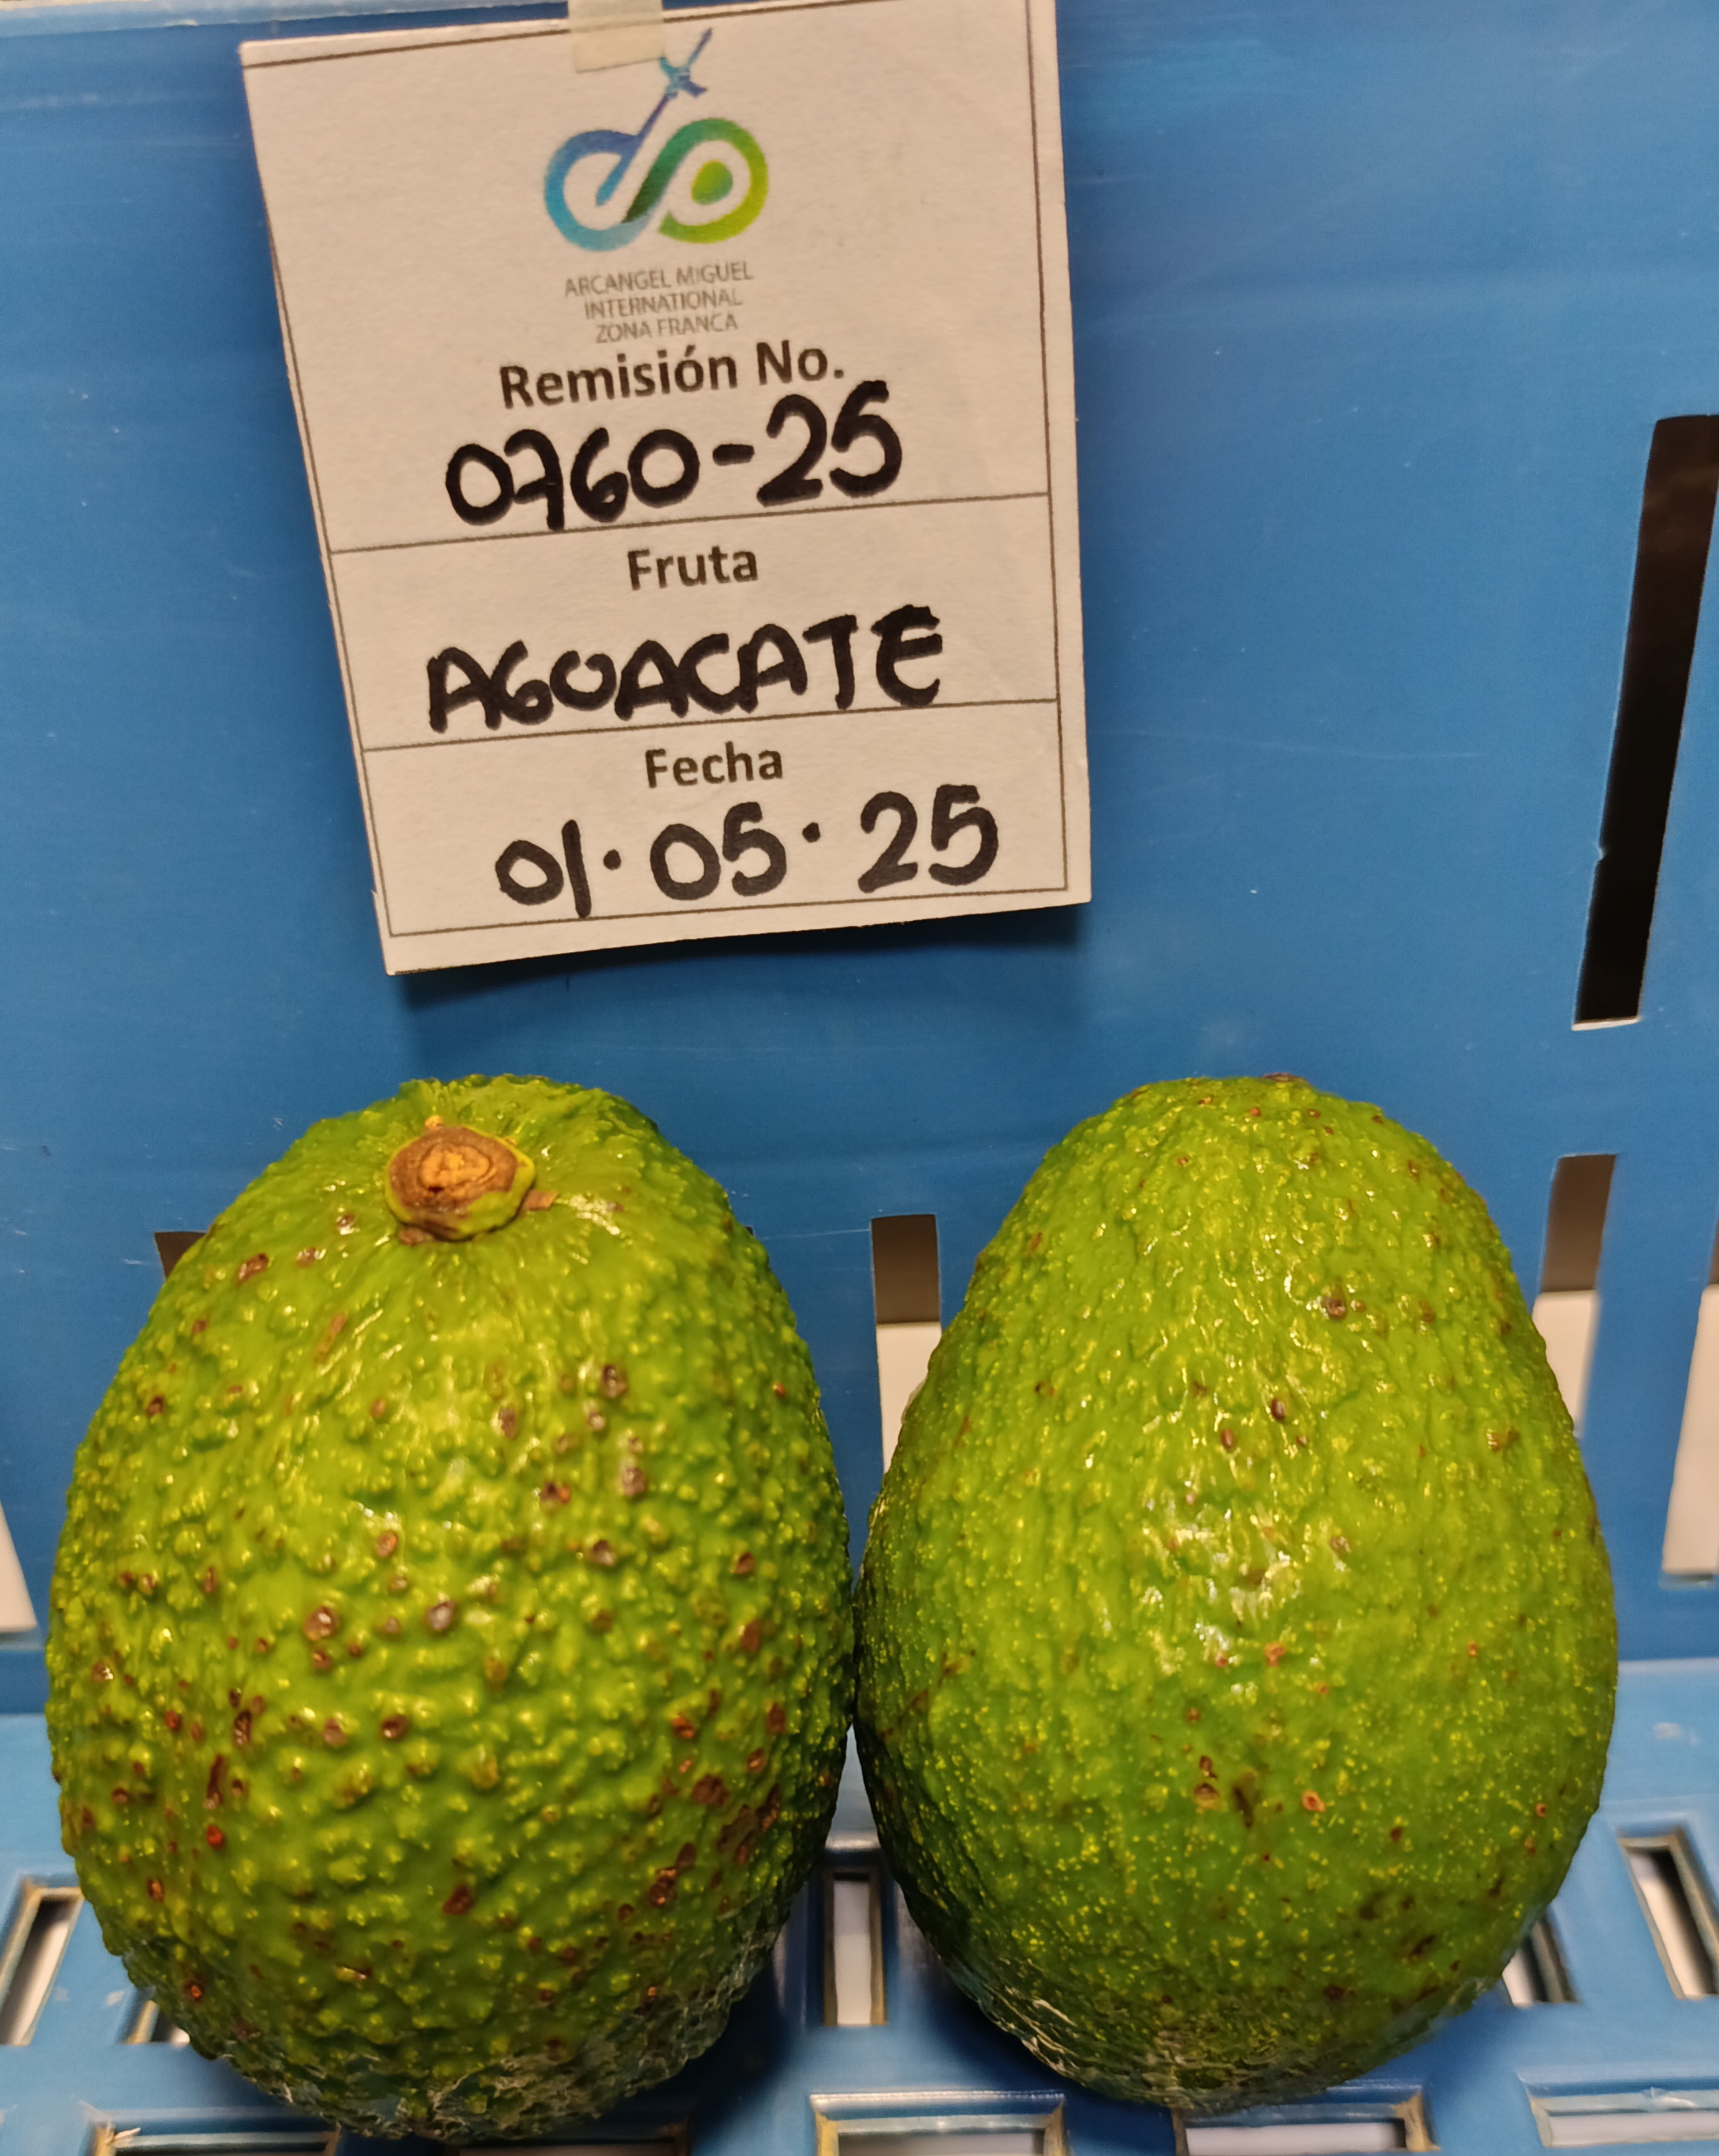 ARCANGEL MIGUEL
INTERNATIONAL
ZONA FRANCA
Remisión No.
0760-25
Fruta
AGUACATE
Fecha
01·05·25